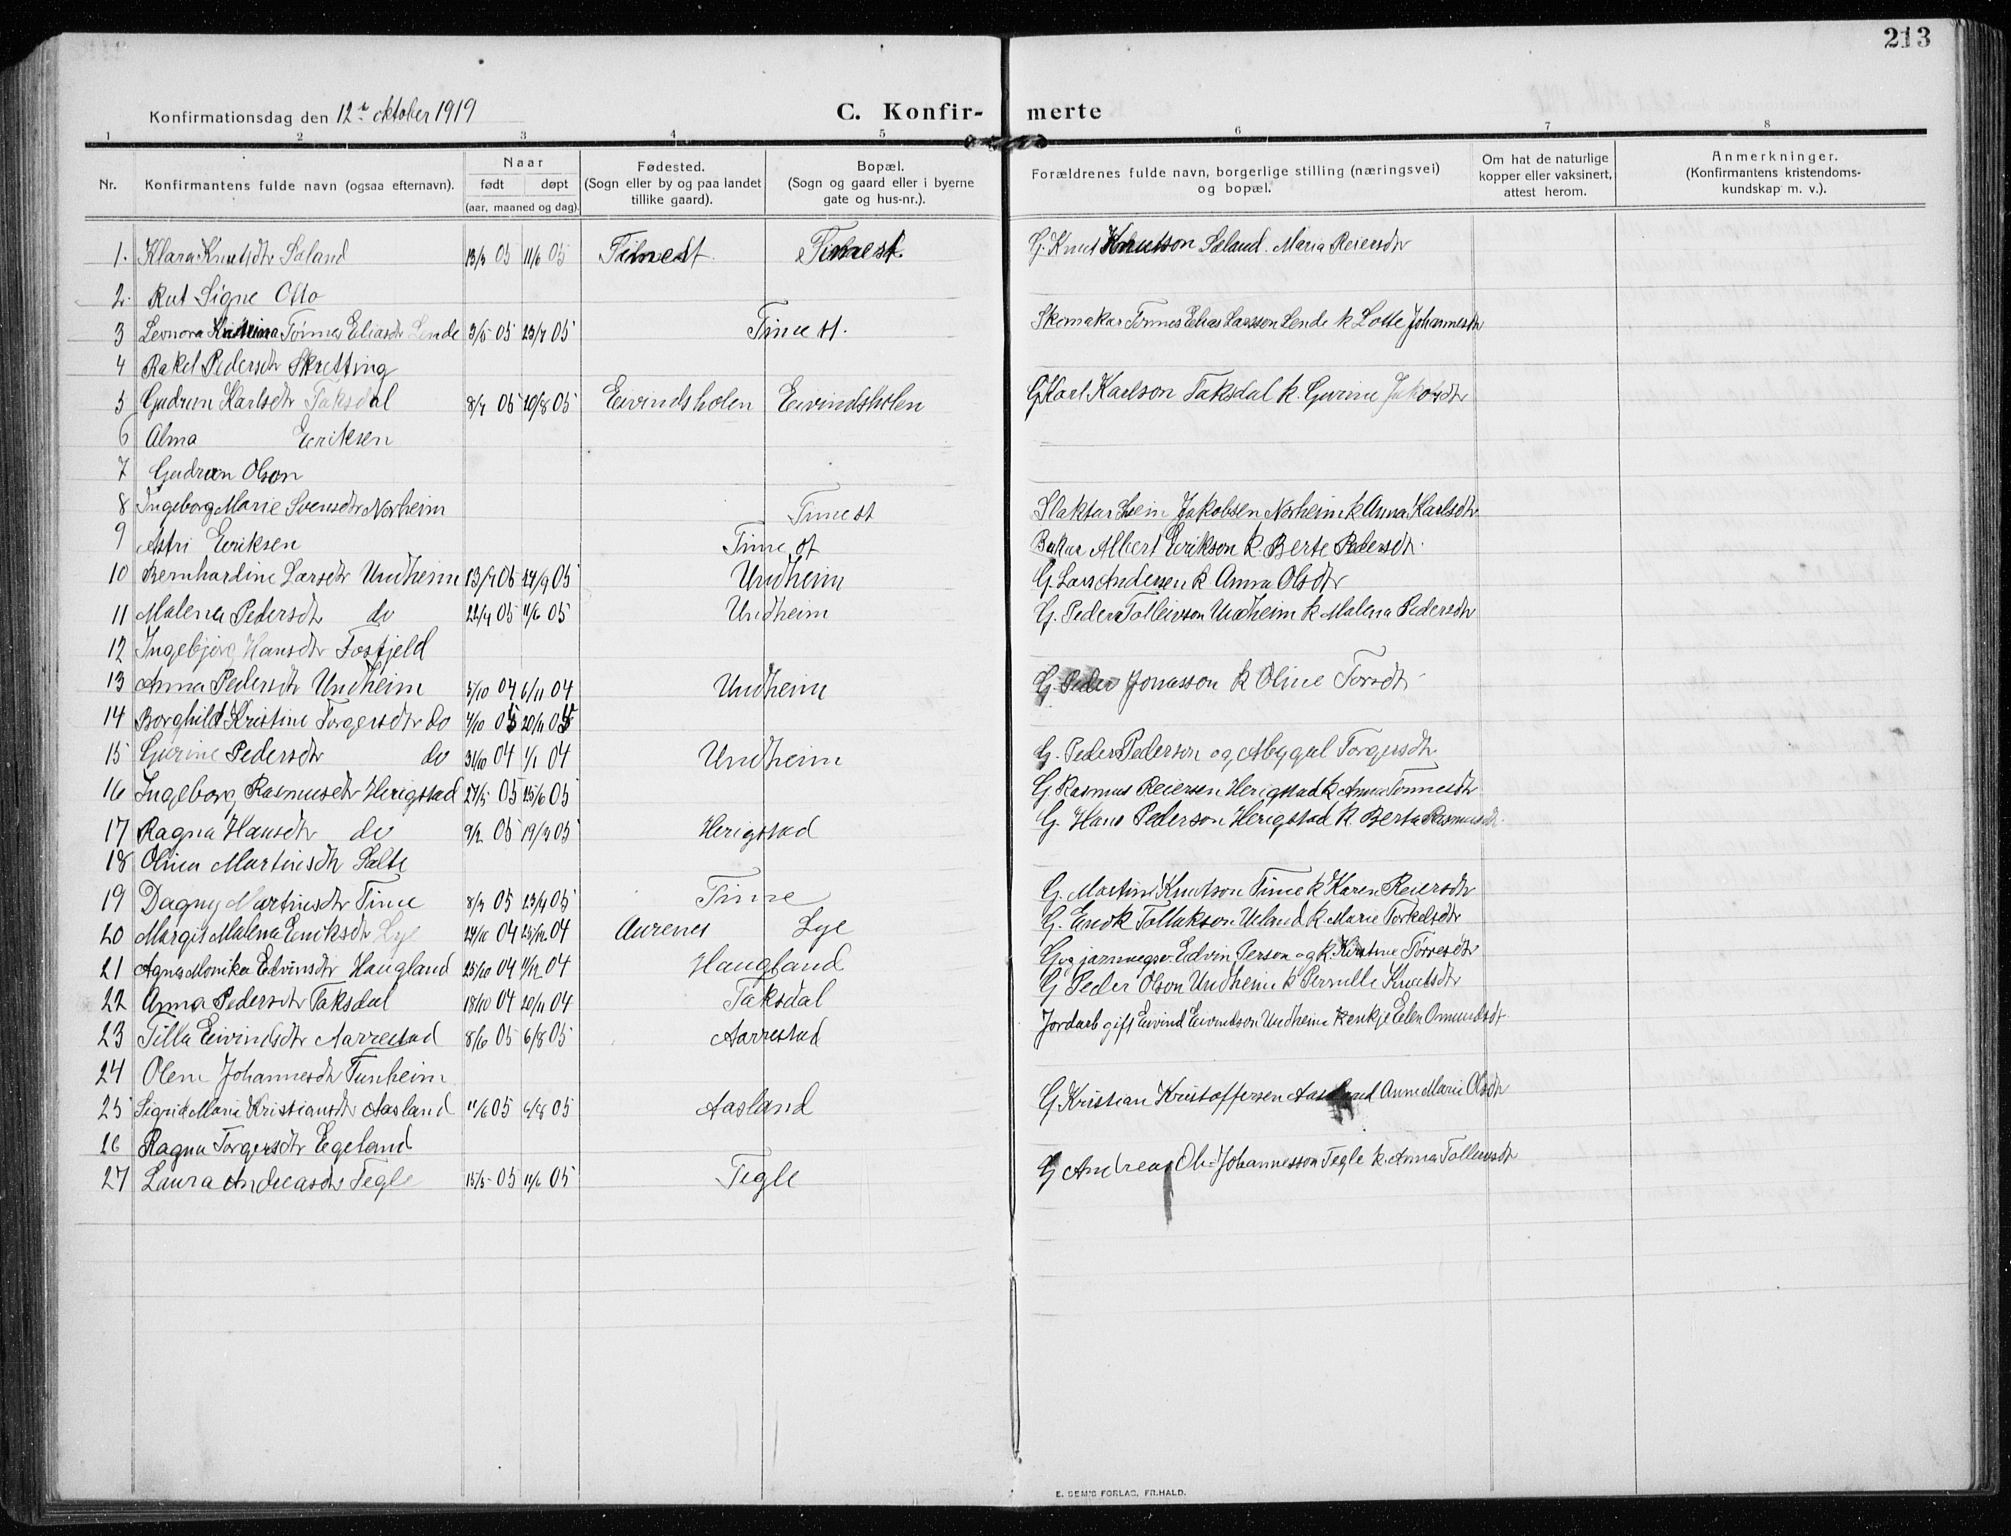 213
Konfirmationsdag den 12te oktober 1919
C. Konfirmerte
1 2 3 4 5 6 7 8
Nr.
Konfirmantens fulde navn (ogsaa efternavn).
Naar
født døpt
(aar, maaned og dag).
Fødested.
(Sogn eller by og paa landet
tillike gaard).
Bopæl.
(Sogn og gaard eller i byerne
gate og hus-nr.).
Forældrenes fulde navn, borgerlige stilling (næringsvei)
og bopæl.
Om hat de naturlige
kopper eller vaksinert,
attest herom.
Anmerkninger.
(Konfirmantens kristendoms-
kundskap m. v.).
1. Klara Knutsdtr Søland 13/3 05 11/6 05 Time st. Time st. G. Knut Knutson Søland. Maria Reiersdtr
2. Rut Signe Otto
3 Leonora Tønnes Eliasdtr Lende 3/5 05 23/7 05 Time st. Skomakar Tønnes Elias Larsson Lende k Lotte Johannesdtr
4 Rakel Pedersdtr Skretting
5 Gudrun Karlsdtr Taksdal 8/7 05 20/8 05 Eivindsholen Eivindsholen G Karl Karlson Taksdal k. Gurine Jakobsdtr
6 Alma Eeriksen
7 Gudrun Olson
8 Ingeborg Marie Svensdtr Norheim Time st Slaktar Svein Jakobsen Norheim k Anna Karlsdtr
9 Astri Eeriksen Time st Bakar Albert Eerikson k. Berte Pedersdt.
10 Bernhardine Larsdtr Undheim 13/7 05 24/9 05 Undheim G. Lars Andersen k Anna Olsdtr
11 Malena Pedersdtr do 22/4 05 11/6 05 Undheim G. Peder Tolleivson Undheim k Malena Pedersdtr
12 Ingebjørg Hansdtr Fosfjeld
13 Anna Pedersdtr Undheim 5/10 04 6/11 04 Undheim G. Peder Jonasson k Oline Torsdt.
14 Borghild Kristine Torgersdtr do 7/10 05 20/11 05
15 Gurine Pedersdtr do 31/10 04 1/1 04 Undheim G. Peder Pederson og Abygæl Torgersdtr
16 Ingeborg Rasmusdtr Herigstad 27/5 05 25/6 05 G Rasmus Reiersen Herigstad k Anna Tønnesdtr
17 Ragna Hansdtr do 9/2 05 19/3 05 Herigstad G. Hans Pederson Herigstad k. Berta Rasmusdt.
18 Olina Martinsdtr Salte
19 Dagny Martinsdtr Time 8/3 05 23/4 05 Time G. Martin Knutson Time k Karen Reiersdtr
20 Margit Malena Eriksdtr Lye 24/10 04 25/12 04 Aurenes Lye G. Endk Tollakson Ueland k Marie Torkelsdtr
21 Agna Monika Edvinsdtr Haugland 25/10 04 11/12 04 Haugland G og jarnvegsv. Edvin Person og k. Kristine Tørresdtr
22 Anna Pedersdtr Taksdal 18/10 04 20/11 04 Taksdal G Peder Olson Undheim k Pernille Knutsdtr
23 Tilla Eivindsdtr Aarrestad 8/6 05 6/8 05 Aarrestad Jordarb gift Eivind Eivindson Undheim kenkje Elen Omundsdt.
24 Olene Johannesdtr Tunheim
25 Sigrid Marie Kristiansdtr Aasland 11/6 05 6/8 05 Aasland G Kristian Kristoffersen Aasland Anne Marie Olsdtr
26 Ragna Torgersdtr Egeland
27 Laura Andreasdtr Tegle 15/5 05 11/6 05 Tegle G Andreas Ole Johannesson Tegle k. Anna Tolleivsdtr
E. SEM'S FORLAG, FR.HALD.